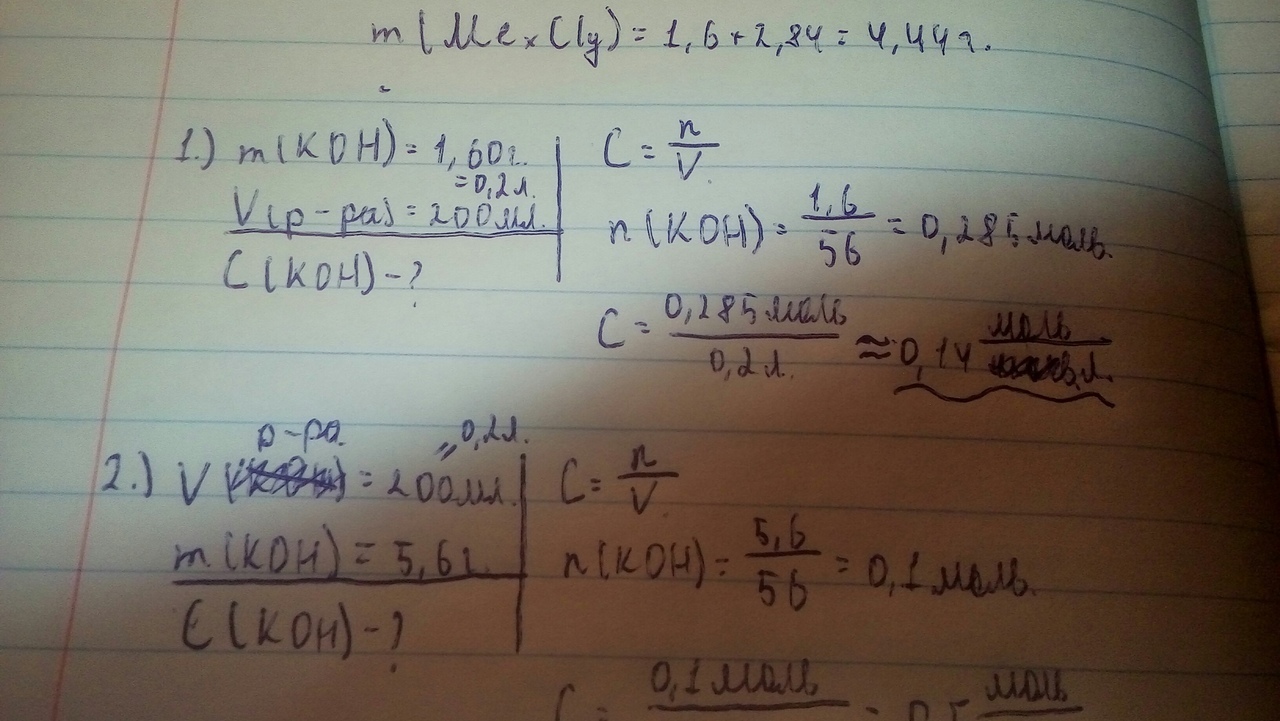 m(MexCly) = 1,6+2,84 = 4,44 г.
1.) m(KOH) = 1,60г.
= 0,2л.
V(р-ра) = 200мл.
C(KOH) - ?
C = n/V
n(KOH) = 1,6/56 = 0,285 моль.
C = 0,285 моль/0,2л. ≈ 0,14 моль/л.
2.) V р-ра = 200мл. = 0,2л.
m(KOH) = 5,6г.
C(KOH) - ?
C = n/V
n(KOH) = 5,6/56 = 0,1 моль.
C = 0,1 моль = 0,5 моль